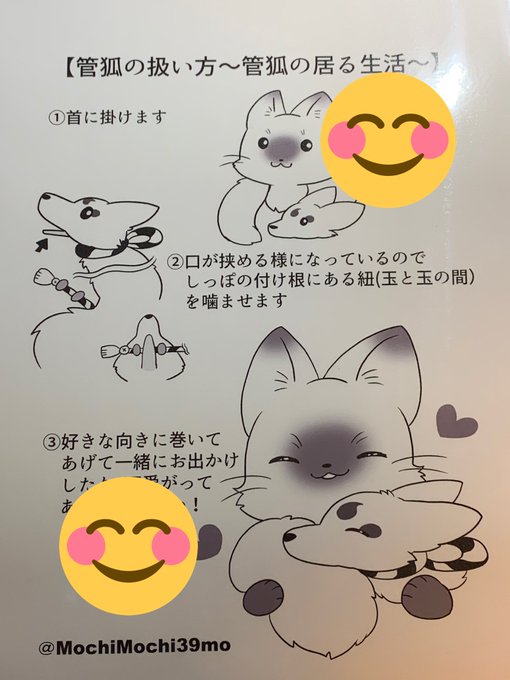 【管狐の扱い方〜管狐の居る生活〜】
①首に掛けます
②口が挟める様になっているので
しっぽの付け根にある紐(玉と玉の間)
を噛ませます
③好きな向きに巻いて
あげて一緒にお出かけ
した
がって
！
@MochiMochi39mo